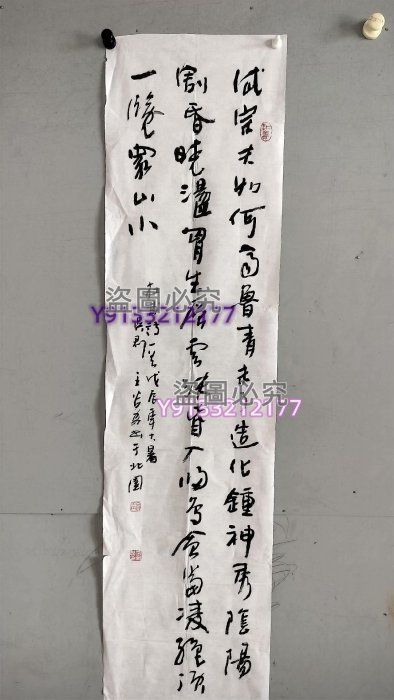 岱宗夫如何齊魯青未了造化鍾神秀陰陽
割昏曉盪胸生層雲決眥入歸鳥會當凌絕頂
一覽眾山小
一首戊辰年大暑
于北園
盜圖必究
Y9133212177
盜圖必究
Y9133212177